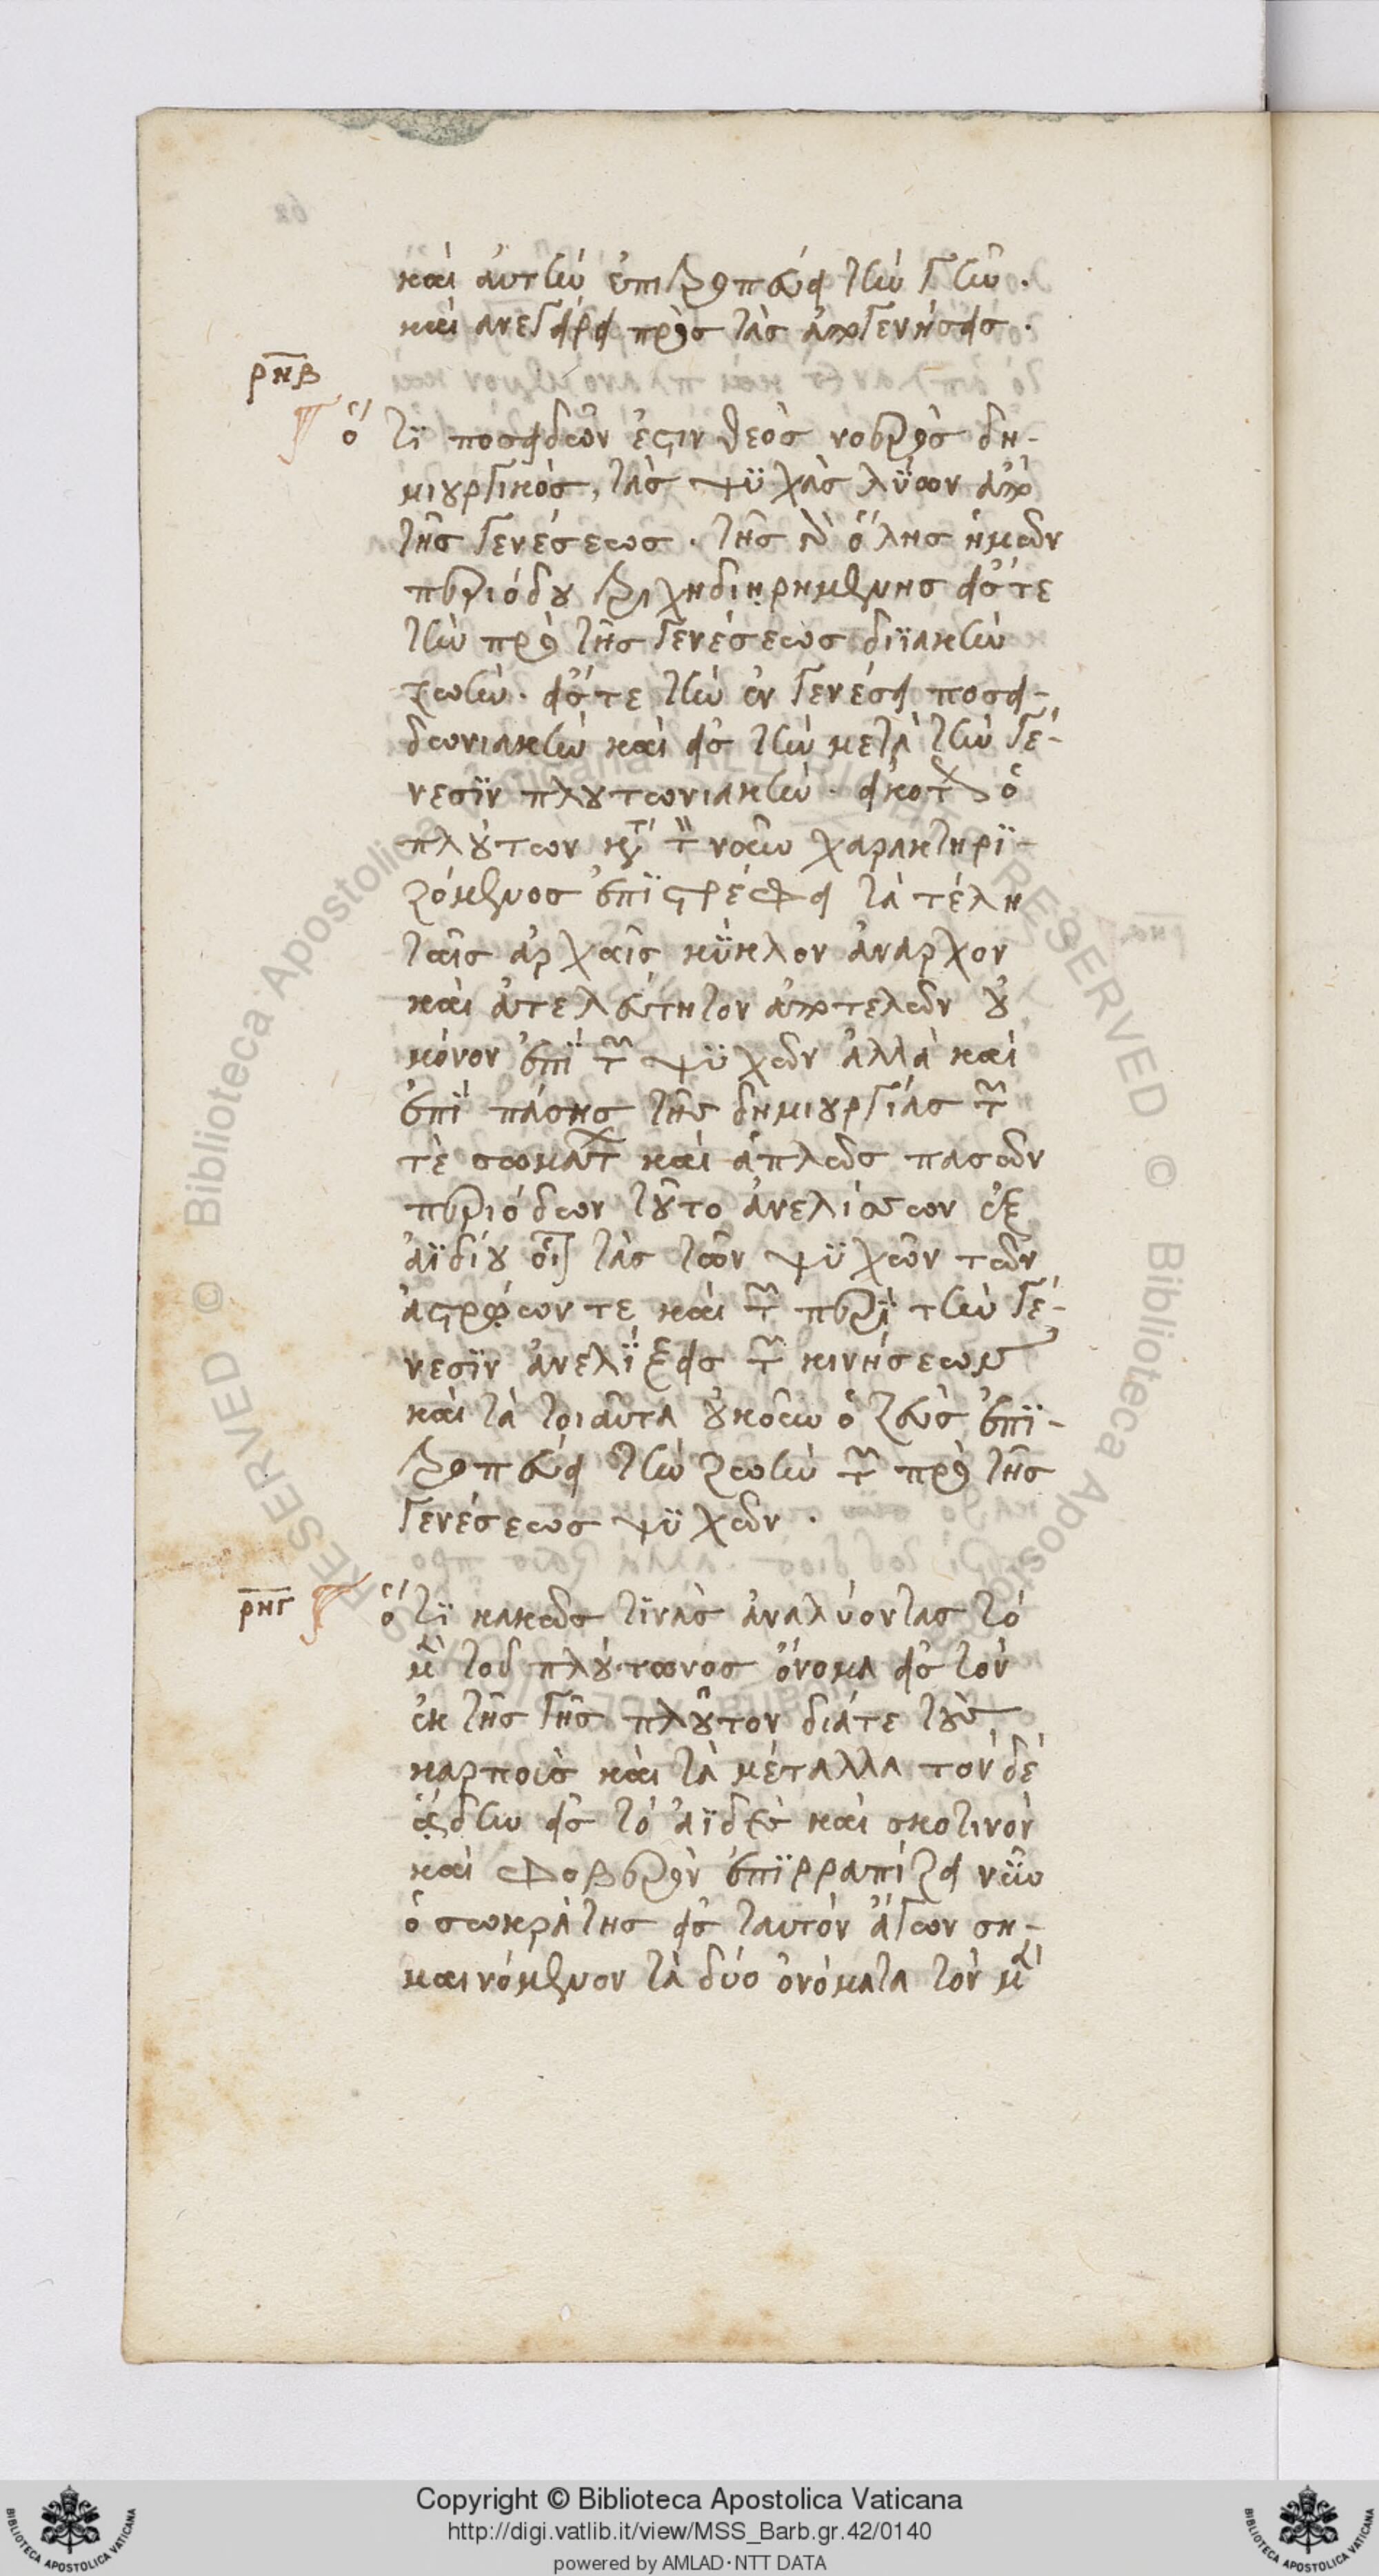 καὶ αὐτὴν ἐπιτροπεύει τὴν γῆν.
καὶ ἀνεγείρει πρὸς τὰς ἀπογεννήσεις.
ρνβ
ὅτι ποσειδῶν ἐστιν θεὸς νοερὸς δη-
μιουργικός, τὰς ψυχὰς λύων ἀπὸ
τῆς γενέσεως. τῆς δὲ ὅλης ἡμῶν
περιόδου τριχῇ διῃρημένης εἴς τε
τὴν πρὸ τῆς γενέσεως διϊακὴν
ζωὴν. εἴς τε τὴν ἐν γενέσει ποσει-
δωνιακὴν καὶ εἰς τὴν μετὰ τὴν γέ-
νεσιν πλουτωνιακὴν. εἰκότως ὁ
πλούτων κατὰ τὸν νοῦν χαρακτηρι-
ζόμενος ἐπιστρέφει τὰ τέλη
ταῖς ἀρχαῖς κύκλον ἄναρχον
καὶ ἀτελεύτητον ἀποτελῶν οὐ
μόνον ἐπὶ τῶν ψυχῶν ἀλλὰ καὶ
ἐπὶ πάσης τῆς δημιουργίας τῶν
τε σωμάτων καὶ ἁπλῶς πασῶν
περιόδων τοῦτο ἀνελίσσων ἐξ
ἀϊδίου οἷον τὰς τῶν ψυχῶν τῶν
ἀστρῴων τε καὶ τῶν περὶ τὴν γέ-
νεσιν ἀνελίξεις τῶν κινήσεων
καὶ τὰ τοιαῦτα οὐκοῦν ὁ ζεὺς ἐπι-
τροπεύει τὴν ζωὴν τῶν πρὸ τῆς
γενέσεως ψυχῶν.
ρνγ
ὅτι κακῶς τινὰς ἀναλύοντας τὸ
μὲν τοῦ πλούτωνος ὄνομα εἰς τὸν
ἐκ τῆς γῆς πλοῦτον διά τε τοὺς
καρποὺς καὶ τὰ μέταλλα τὸν δὲ
ᾅδην εἰς τὸ ἀϊδὲς καὶ σκοτινὸν
καὶ φοβερὸν ἐπιρραπίζει νῦν
ὁ σωκράτης εἰς ταυτὸν ἄγων ση-
μαινόμενον τὰ δύο ὀνόματα τὸν μὲν
Copyright © Biblioteca Apostolica Vaticana
http://digi.vatlib.it/view/MSS_Barb.gr.42/0140
powered by AMLAD·NTT DATA